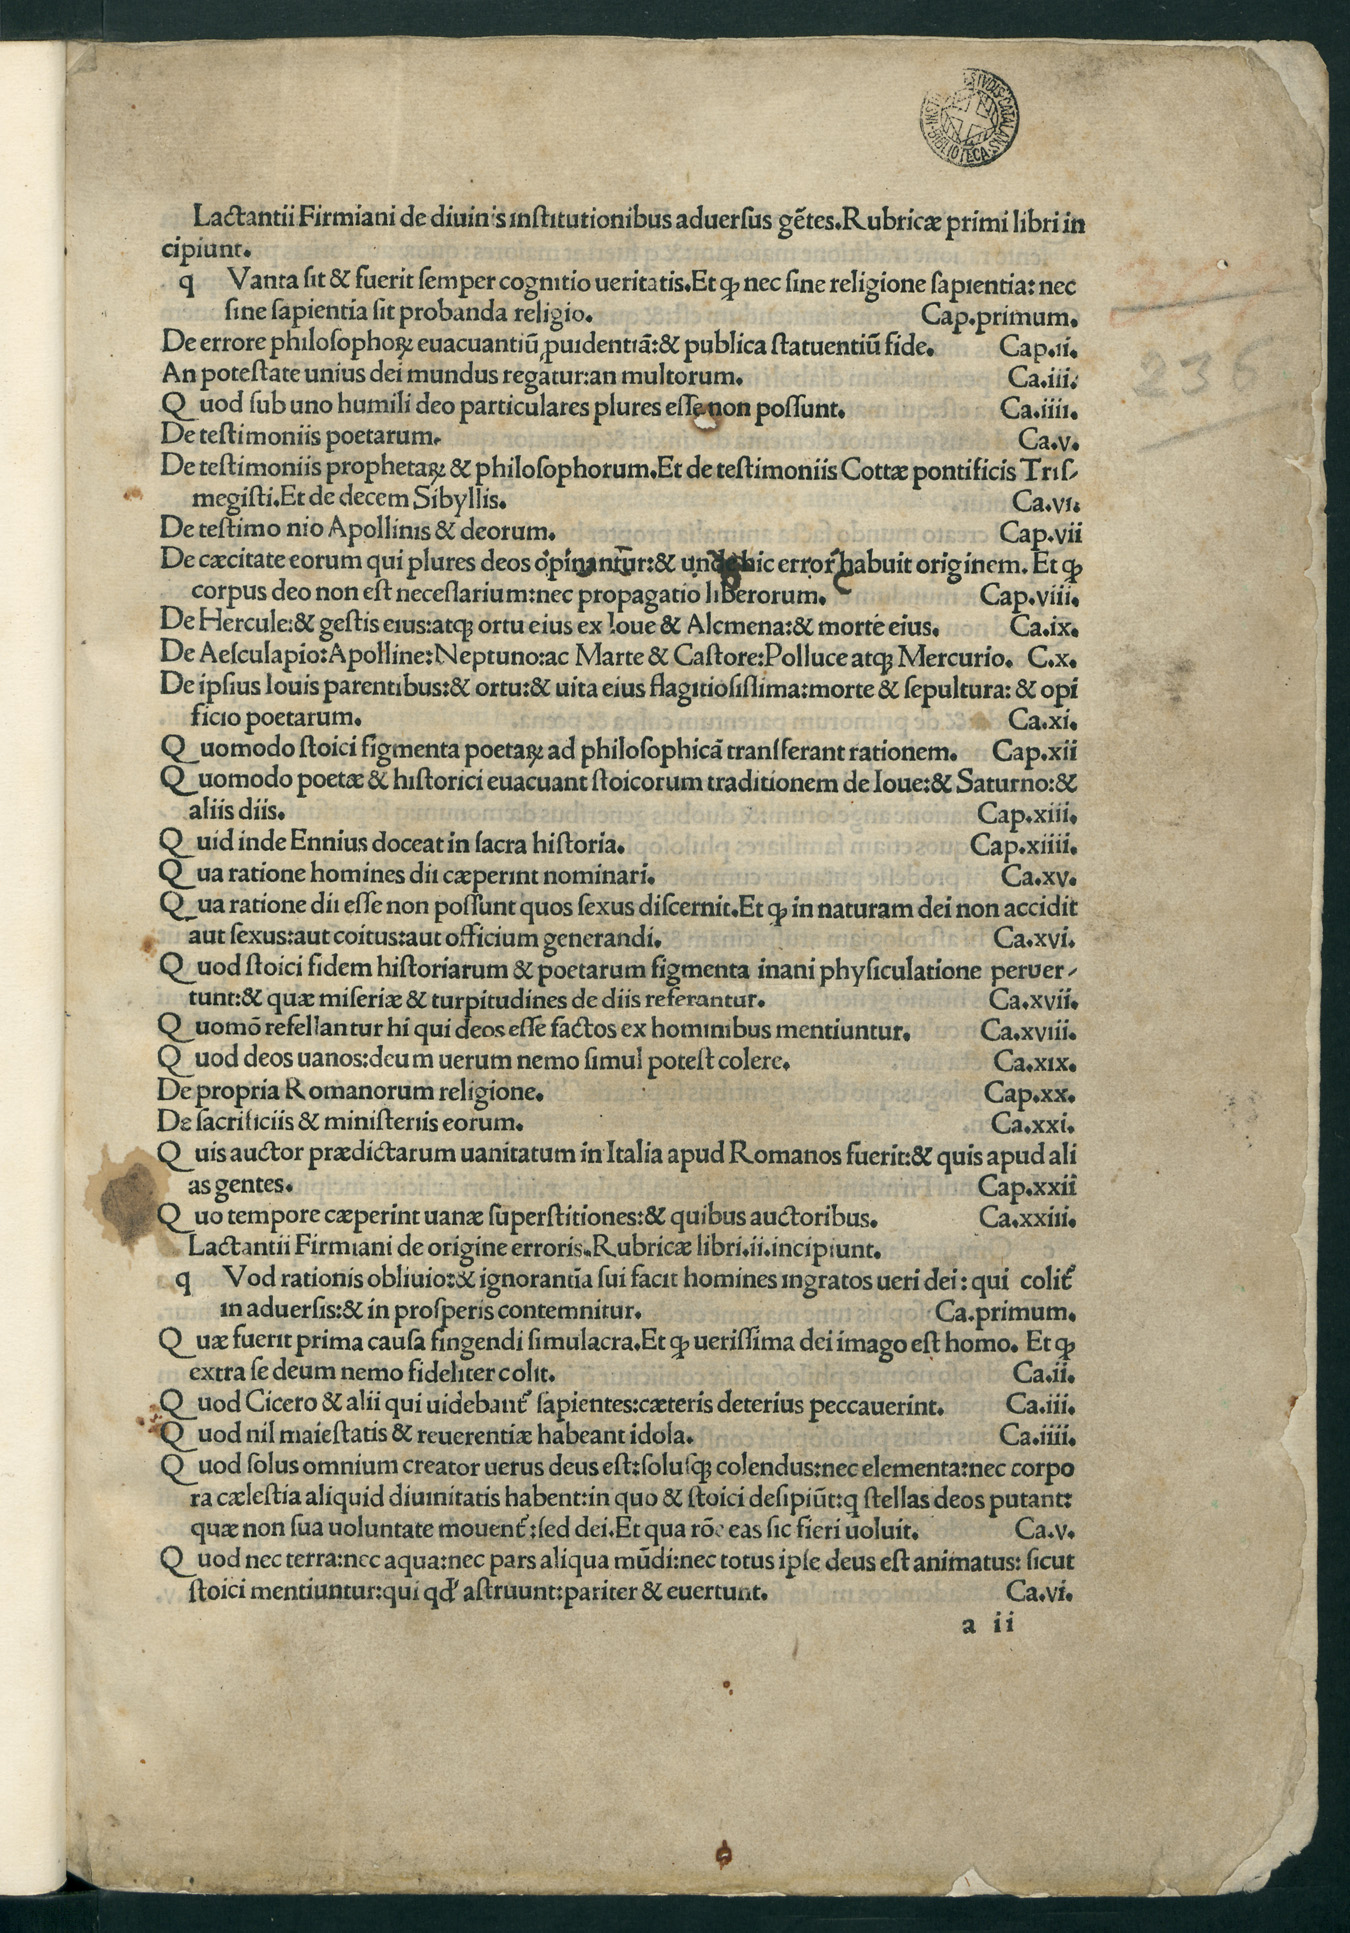 INSTITUT D'ESTUDIS CATALANS · BIBLIOTECA ·
Lactantii Firmiani de diuinis institutionibus aduersus gētes.Rubricæ primi libri in
cipiunt.
q Vanta sit & fuerit semper cognitio ueritatis.Et ꝙ nec sine religione sapientia: nec
sine sapientia sit probanda religio. Cap.primum.
De errore philosophoꝝ euacuantiū ꝓuidentiā:& publica statuentiū fide. Cap.ii.
An potestate unius dei mundus regatur:an multorum. Ca.iii.
Q uod sub uno humili deo particulares plures esse non possunt. Ca.iiii.
De testimoniis poetarum. Ca.v.
De testimoniis prophetaꝝ & philosophorum.Et de testimoniis Cottæ pontificis Tris-
megisti.Et de decem Sibyllis. Ca.vi.
De testimo nio Apollinis & deorum. Cap.vii
De cæcitate eorum qui plures deos opinantur:& unde hic error habuit originem. Et ꝙ
corpus deo non est necessarium:nec propagatio liberorum. Cap.viii.
De Hercule:& gestis eius:atqꝫ ortu eius ex Ioue & Alcmena:& morte eius. Ca.ix.
De Aesculapio:Apolline:Neptuno:ac Marte & Castore:Polluce atqꝫ Mercurio. C.x.
De ipsius Iouis parentibus:& ortu:& uita eius flagitiosissima:morte & sepultura: & opi
ficio poetarum. Ca.xi.
Q uomodo stoici figmenta poetaꝝ ad philosophicā transferant rationem. Cap.xii
Q uomodo poetæ & historici euacuant stoicorum traditionem de Ioue:& Saturno:&
aliis diis. Cap.xiii.
Q uid inde Ennius doceat in sacra historia. Cap.xiiii.
Q ua ratione homines dii cæperint nominari. Ca.xv.
Q ua ratione dii esse non possunt quos sexus discernit.Et ꝙ in naturam dei non accidit
aut sexus:aut coitus:aut officium generandi. Ca.xvi.
Q uod stoici fidem historiarum & poetarum figmenta inani physiculatione peruer-
tunt:& quæ miseriæ & turpitudines de diis referantur. Ca.xvii.
Q uomō refellantur hi qui deos esse factos ex hominibus mentiuntur. Ca.xviii.
Q uod deos uanos:deum uerum nemo simul potest colere. Ca.xix.
De propria Romanorum religione. Cap.xx.
De sacrificiis & ministeriis eorum. Ca.xxi.
Q uis auctor prædictarum uanitatum in Italia apud Romanos fuerit:& quis apud ali
as gentes. Cap.xxii
Q uo tempore cæperint uanæ superstitiones:& quibus auctoribus. Ca.xxiii.
Lactantii Firmiani de origine erroris.Rubricæ libri.ii.incipiunt.
q Vod rationis obliuio:& ignorantia sui facit homines ingratos ueri dei: qui colit᷑
in aduersis:& in prosperis contemnitur. Ca.primum.
Q uæ fuerit prima causa fingendi simulacra.Et ꝙ uerissima dei imago est homo. Et ꝙ
extra se deum nemo fideliter colit. Ca.ii.
Q uod Cicero & alii qui uidebant᷑ sapientes:cæteris deterius peccauerint. Ca.iii.
Q uod nil maiestatis & reuerentiæ habeant idola. Ca.iiii.
Q uod solus omnium creator uerus deus est:solusqꝫ colendus:nec elementa:nec corpo
ra cælestia aliquid diuinitatis habent:in quo & stoici desipiūt:q stellas deos putant:
quæ non sua uoluntate mouent᷑:sed dei.Et qua rōe eas sic fieri uoluit. Ca.v.
Q uod nec terra:nec aqua:nec pars aliqua mūdi:nec totus ipse deus est animatus: sicut
stoici mentiuntur:qui qd' astruunt:pariter & euertunt. Ca.vi.
a ii
236